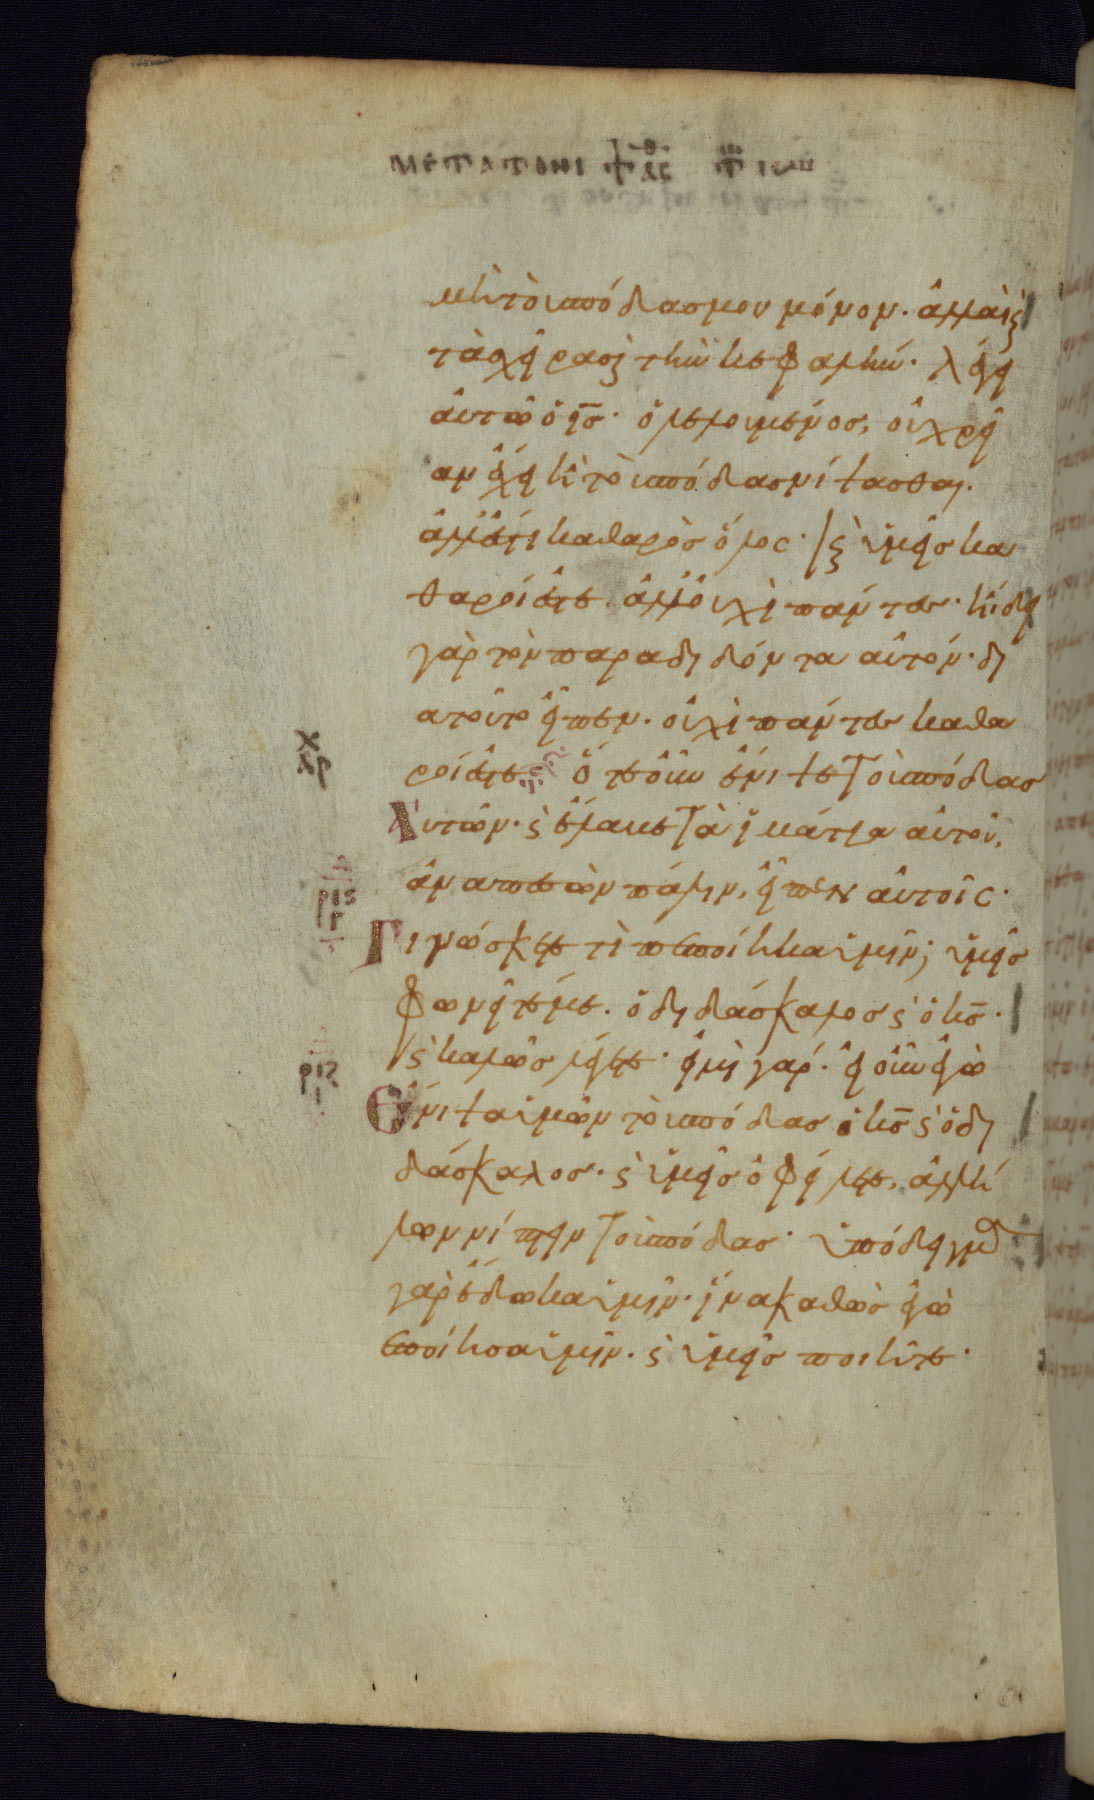 ΜΕΤΑ ΤΟ ΝΙ
μὴ τοὺς πόδας μου μόνον· ἀλλὰ ϗ
τὰς χεῖρας ϗ τὴν κεφαλήν· λέγει
αὐτῶ ὁ ις· ὁ λελουμένος, οὐ χρεί
αν ἔχει ἢ τοὺς πόδας νίψασθαι·
ἀλλ' ἔστι καθαρὸς ὅλος· ϗ ὑμεῖς κα
θαροί ἐστε. ἀλλ' οὐχὶ πάντες· ἤδει
γὰρ τὸν παραδιδόντα αὐτόν· δι
ατοῦτο εἶπεν· οὐχὶ πάντες καθα
ροί ἐστε· ὅτε οὖν ἔνιψε τοὺς πόδας
Αὐτῶν· ϗ ἔλαβε τὰ ἱμάτια αὐτοῦ,
ἀναπεσὼν πάλιν, εἶπεν αὐτοῖς·
Γινώσκετε τί πεποίηκα ὑμῖν; ὑμεῖς
φωνεῖτέ με· ὁ διδάσκαλος ϗ ὁ κς·
ϗ καλῶς λέγετε· εἰμὶ γάρ· εἰ οὖν ἐγὼ
Ἔνιψα ὑμῶν τοὺς πόδας ὁ κς ϗ ὁ δι
δάσκαλος· ϗ ὑμεῖς ὀφείλετε, ἀλλή
λων νίπτειν τοὺς πόδας· ὑπόδειγμα
γὰρ ἔδωκα ὑμῖν· ἵνα καθὼς ἐγὼ
ἐποίησα ὑμῖν· ϗ ὑμεῖς ποιῆτε·